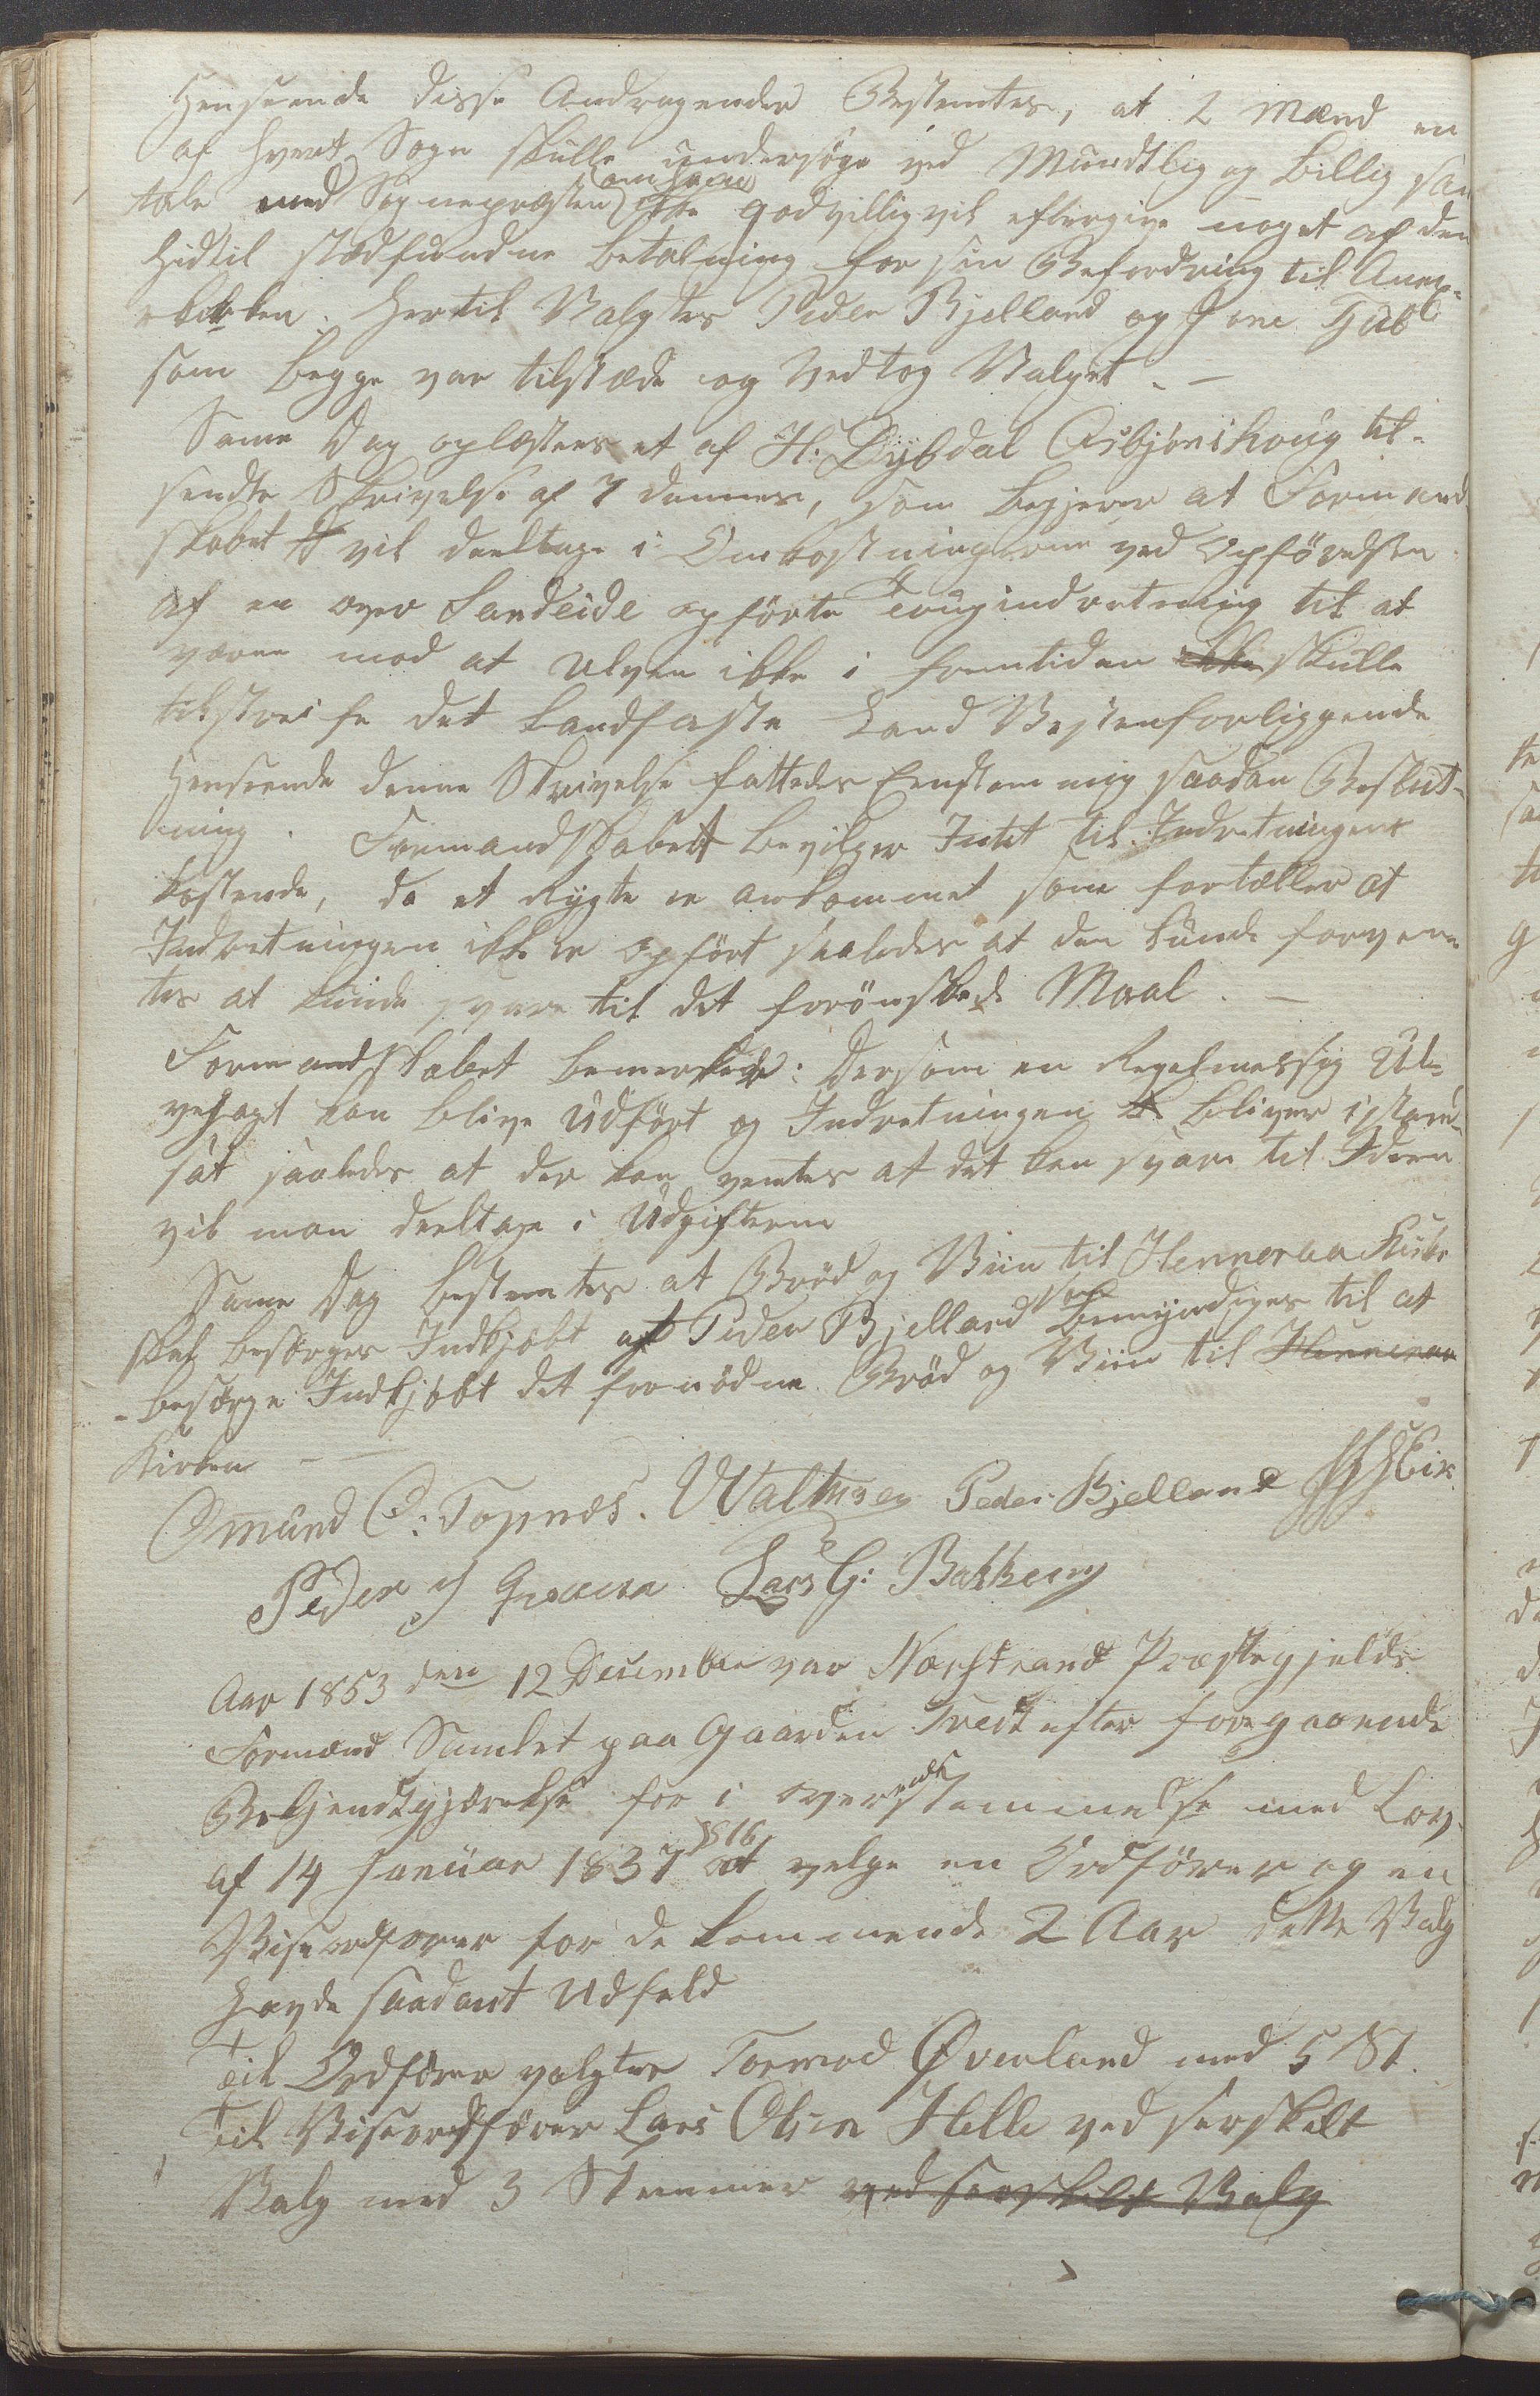 Henseende disse Andragender Bestemtes, at 2 Mænd en
af hvert Sogn skulle undersøge ved Mundtlig og billig sam
tale med Sognepræsten om han
ikke godvillig vil eftergive noget af den
hidtil stædfundne betalning for sin Befordring til Anex-
kirken. Hertil Valgtes Peder Bjelland og Jone Hüb
som begge var tilstæde og Vedtog Valget. —
Same Dag oplæstees et af H: Dybdal Asbjønshoug til-
sendte Skrivelse af 7 dennes, som begjerer at Formand
skabet vil deeltage i Omkostningerne ved Opførelsen
af en over Sandeide opførte Toügindretning til at
være mod at Ulven ikke i fremtiden ikke skulle
tilstreife det landfaste Land Vestenforliggende
Henseende denne Skrivelse fattedes Eenstemmig saadan Beslut-
ning. Formandskabett bevilger Intet til Indretningens
kostende, da et Rygte er ankommet som fortæller at
Indretningen ikke er opført saaledes at den kunde forven-
tes at kunde svare til det forønskede Maal. —
Formandskabet bemerkede: Dersom en Regelmessig Ul-
vejagt kan blive Udført og Indretningen bliver istand-
sat saaledes at der kan ventes at det kan svare til Ideen
vil man deeltage i Udgifterne
Same Dag bestemtes at Brød og Viin til Henneraa Kirke
skal besørges Indkjøbt af Peder Bjelland som bemyndiges til at
besørge Indkjøbt det fornødne Brød og Viin til Hinneraa
Kirken — —
Omund O: Topnæs. WWalthsen Peder Bjelland
Peder J Lars G: Bakkeiey
Aar 1853 den 12 December var Nærstrand Præstegjelds
Formænd Samlet paa Gaarden Træet efter foregaaende
Bekjendtgjørelse for i overeensstemmelse med Lov
af 14 Januar 1837 § 16 at velge en Ordfører og en
Viseordfører for de kommende 2 Aar dette Valg
havde saadant Udfald
Til Ordfører valgtes Tormod Øverland med 5 St.
Til Viseordfører Lars Olsen Helle ved serskilt
Valg med 3 Stemmer ved serskilt Valg